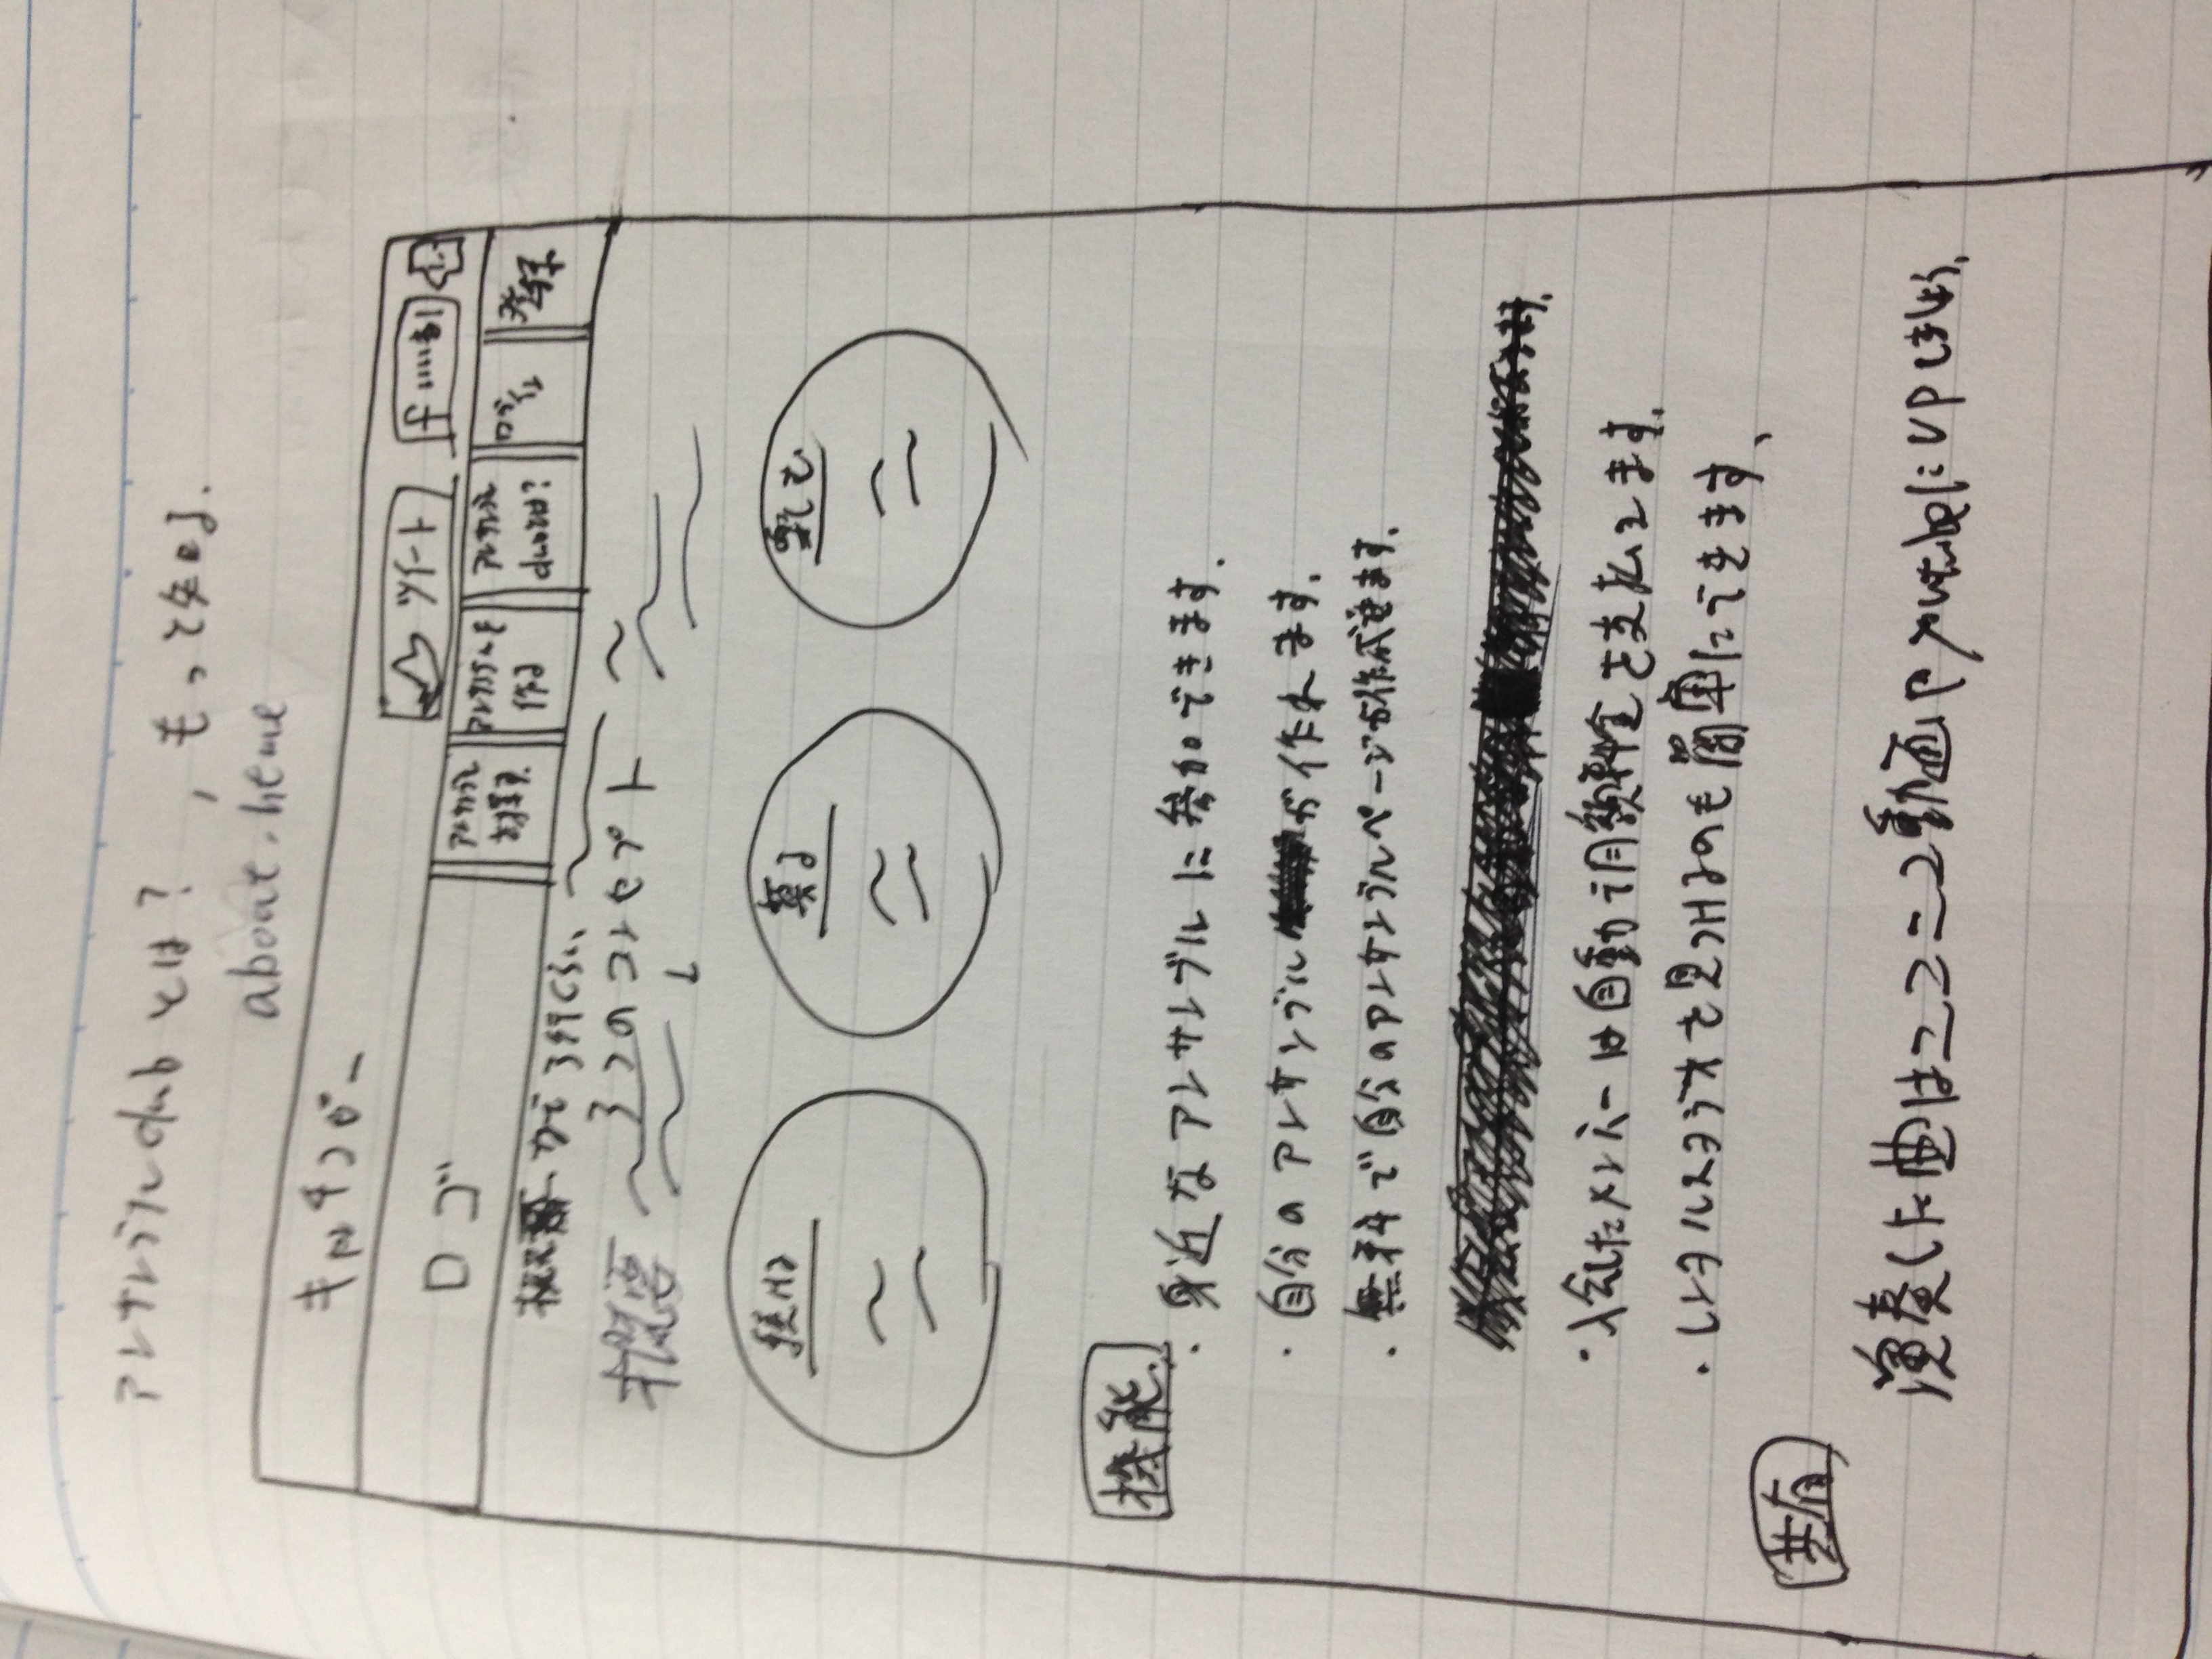 アンサンブルclubとは？，もっと知る．
about.html
キャッチコピー
ツイート
f いいね！
ロゴ
アンサンブルを探す．
アンサンブルを作る
アンサンブルclubとは？
ログイン
登録
3行くらい、
概要
3つのコンセプト
↓
続ける
募る
楽しむ
機能．
・身近なアンサンブルに参加できます．
・自分のアンサンブルが作れます．
・無料で自分のアンサンブルページが作成できます．
・入会したメンバーは自動で月額料金を支払えます．
・レンタルスタジオを見つけるのも簡単にできます、
共有
演奏した曲はニコニコ動画やyoutubeにUPしましょう．